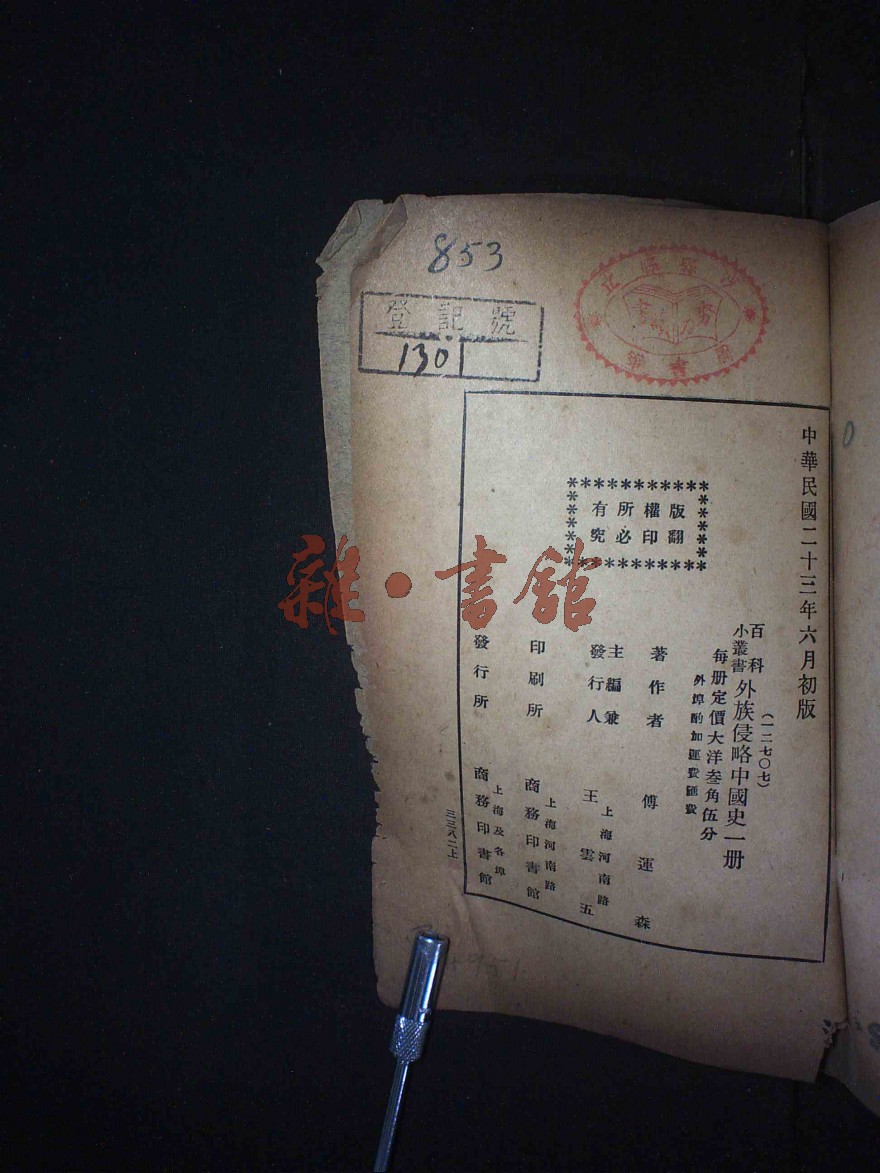 853
登記號
1301
中華民國二十三年六月初版
(一二七〇七)
百科小叢書 外族侵略中國史一册
每册定價大洋叁角伍分
外埠酌加運費匯費
版權所有
翻印必究
著作者 傅運森
主編兼發行人 上海河南路 王雲五
印刷所 上海河南路 商務印書館
發行所 上海及各埠 商務印書館
三三八二上
雜·書館